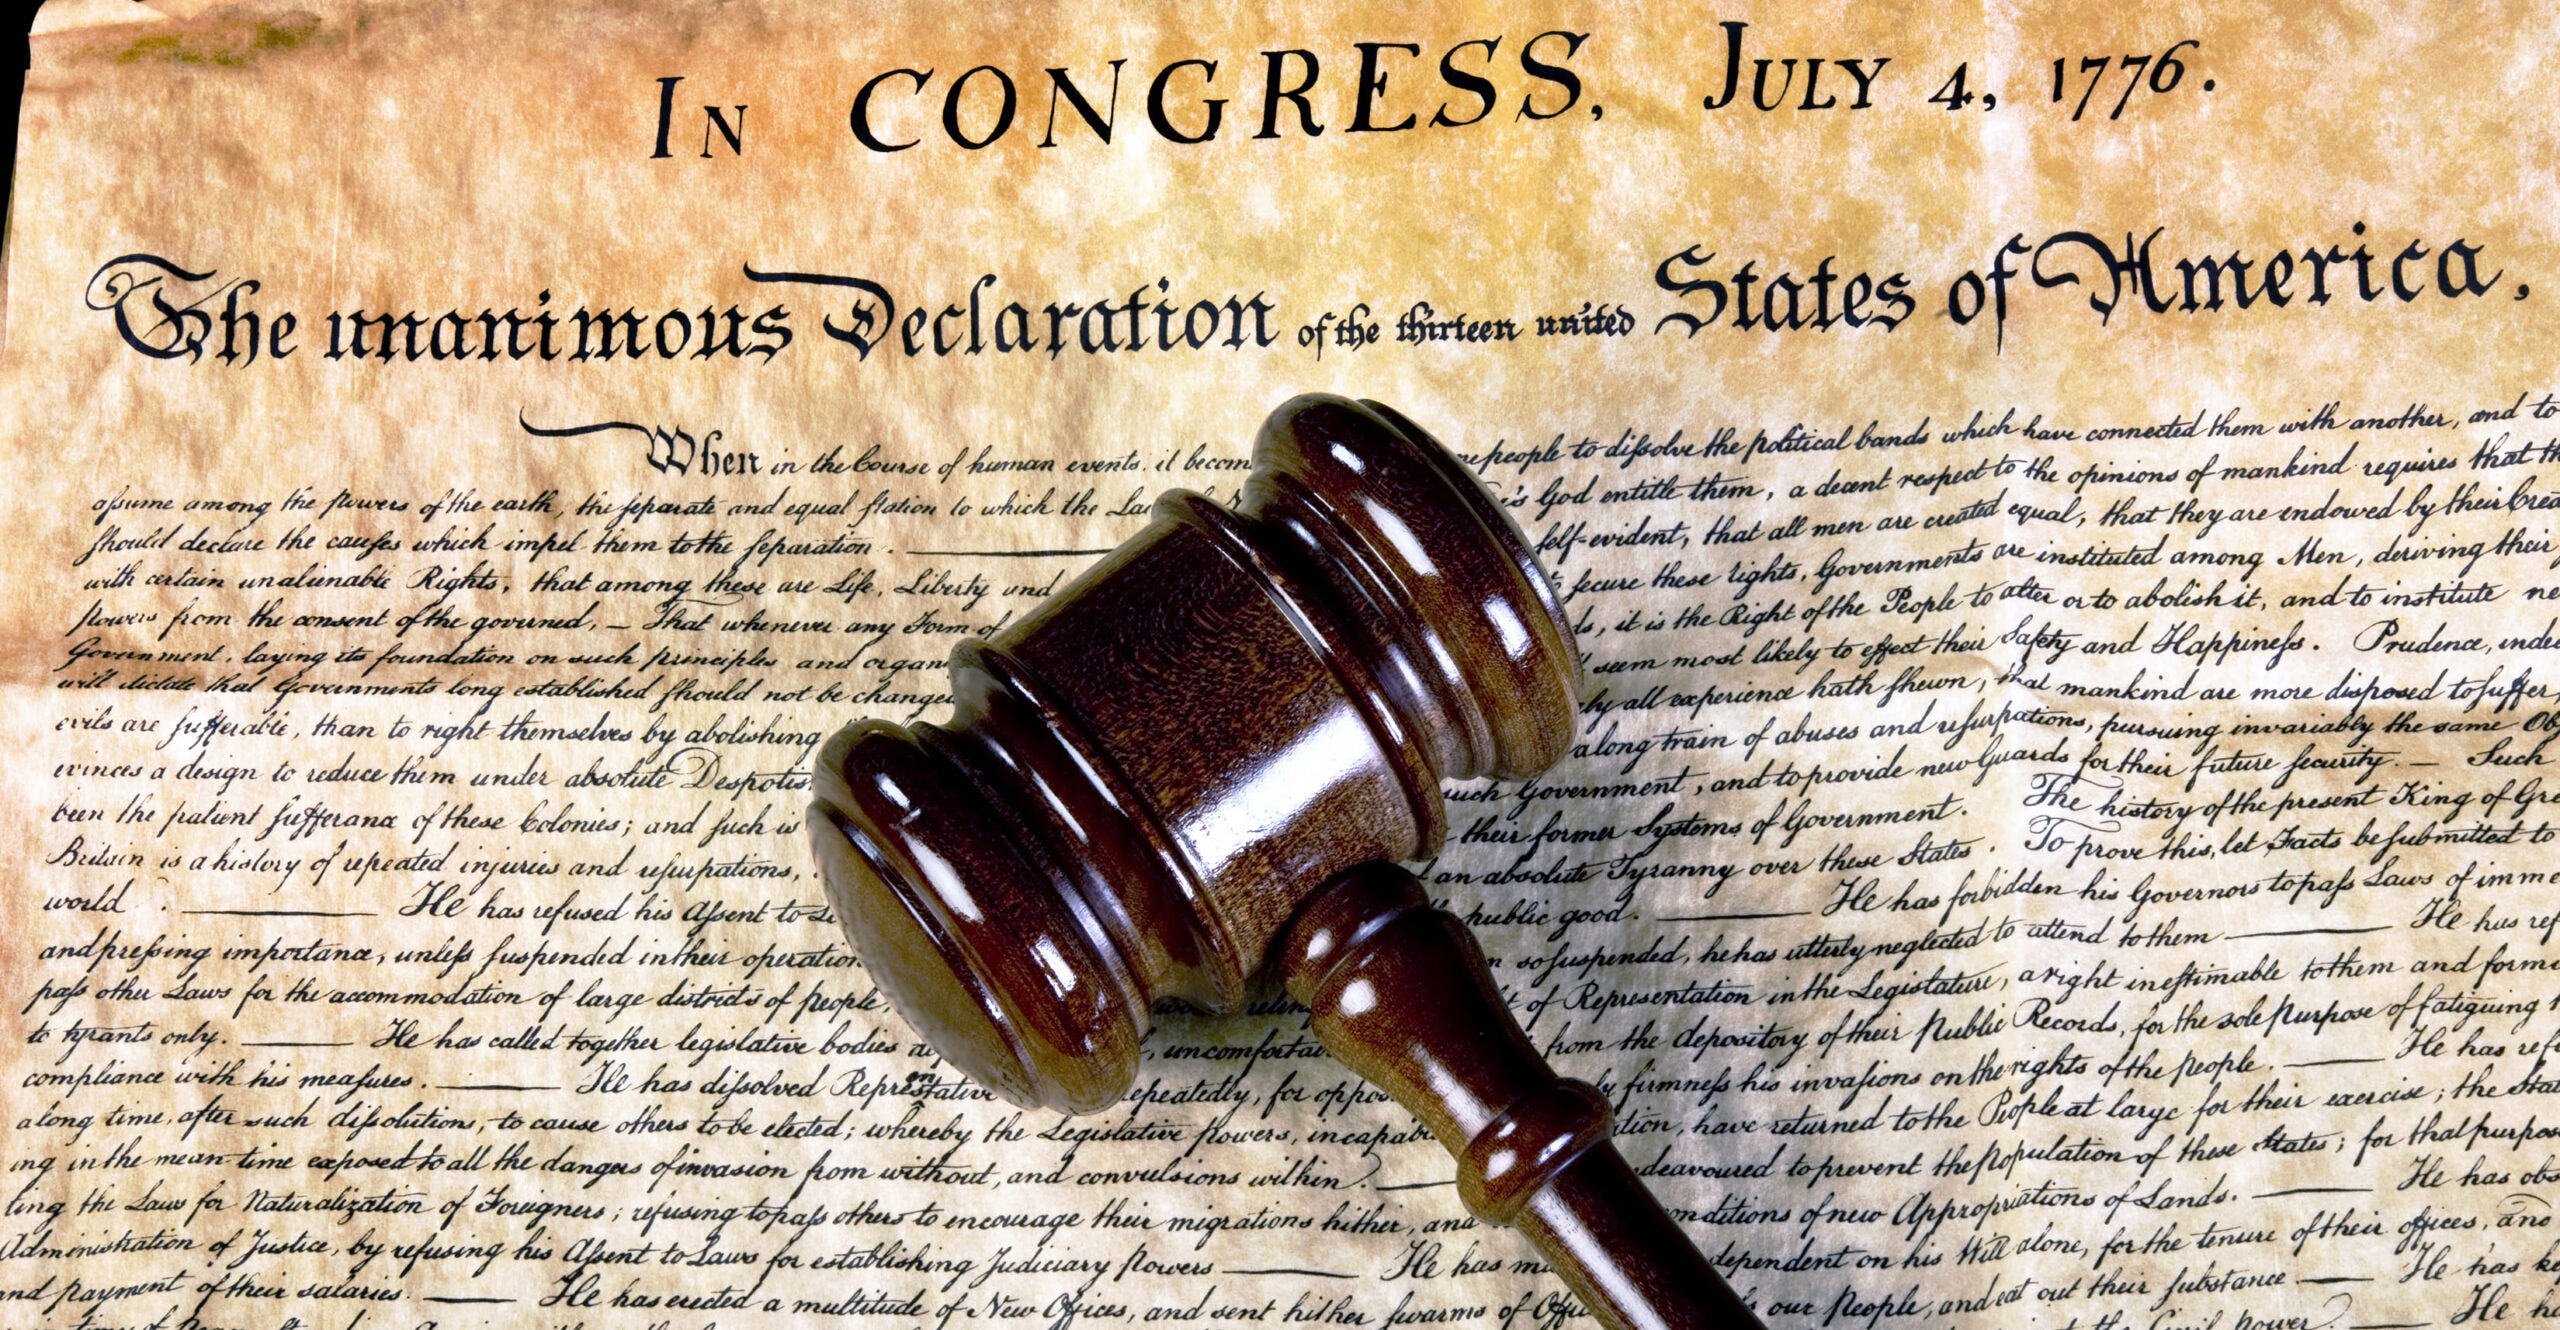 In CONGRESS, July 4, 1776.
The unanimous Declaration of the thirteen united States of America,
When in the Course of human events, it people to dissolve the political bands which have connected them with another, and to
assume among the powers of the earth, the separate and equal station to which the God entitle them, a decent respect to the opinions of mankind requires that
should declare the causes which impel them to the separation. self-evident, that all men are created equal, that they are endowed by their
with certain unalienable Rights, that among these are Life, Liberty and secure these rights, Governments are instituted among Men, deriving their
powers from the consent of the governed, — That whenever any Form of it is the Right of the People to alter or to abolish it, and to institute
Government, laying its foundation on such principles and seem most likely to effect their Safety and Happiness. Prudence,
will dictate that Governments long established should not be all experience hath shewn, that mankind are more disposed to suffer,
evils are sufferable, than to right themselves by abolishing a long train of abuses and usurpations, pursuing invariably the same
evinces a design to reduce them under absolute such Government, and to provide new Guards for their future security. — Such
been the patient sufferance of these Colonies; and such is their former Systems of Government. The history of the present King of
Britain is a history of repeated injuries and usurpations, an absolute Tyranny over these States. To prove this, let Facts be submitted to
world. He has refused his Assent to public good. He has forbidden his Governors to pass Laws of
and pressing importance, unless suspended in their so suspended, he has utterly neglected to attend to them He has
pass other Laws for the accommodation of large districts of people, of Representation in the Legislature, a right inestimable to them and
to tyrants only. He has called together legislative bodies from the depository of their Public Records, for the sole purpose of fatiguing
compliance with his measures. He has dissolved repeatedly, for firmness his invasions on the rights of the people. He has
a long time, after such dissolutions, to cause others to be elected; whereby the Legislative powers, have returned to the People at large for their exercise; the
in the mean time exposed to all the dangers of invasion from without, and convulsions within. to prevent the population of these States; for that
the Laws for Naturalization of Foreigners; refusing to pass others to encourage their migrations hither, and of new Appropriations of Lands. He has
Administration of Justice, by refusing his Assent to Laws for establishing Judiciary powers He has dependent on his Will alone, for the tenure of their offices, and
and payment of their salaries. He has erected a multitude of New Offices, and sent hither swarms of our People, and eat out their substance. He has
He